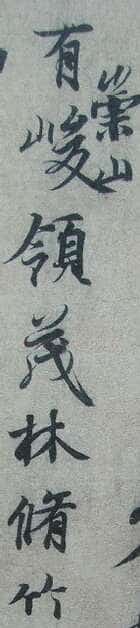 有崇山峻領茂林脩竹